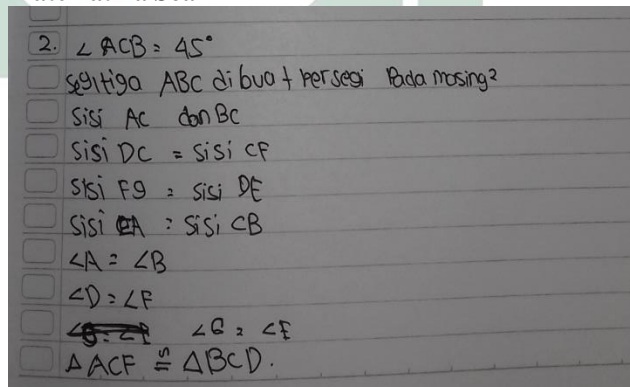 2. ∠ ACB = 45°
segitiga ABC dibuat persegi Pada masing2
sisi AC dan BC
sisi DC = sisi CF
sisi FG = sisi DE
sisi CA = sisi CB
∠A = ∠B
∠D = ∠F
∠G = ∠E
Δ ACF ≅ ΔBCD.